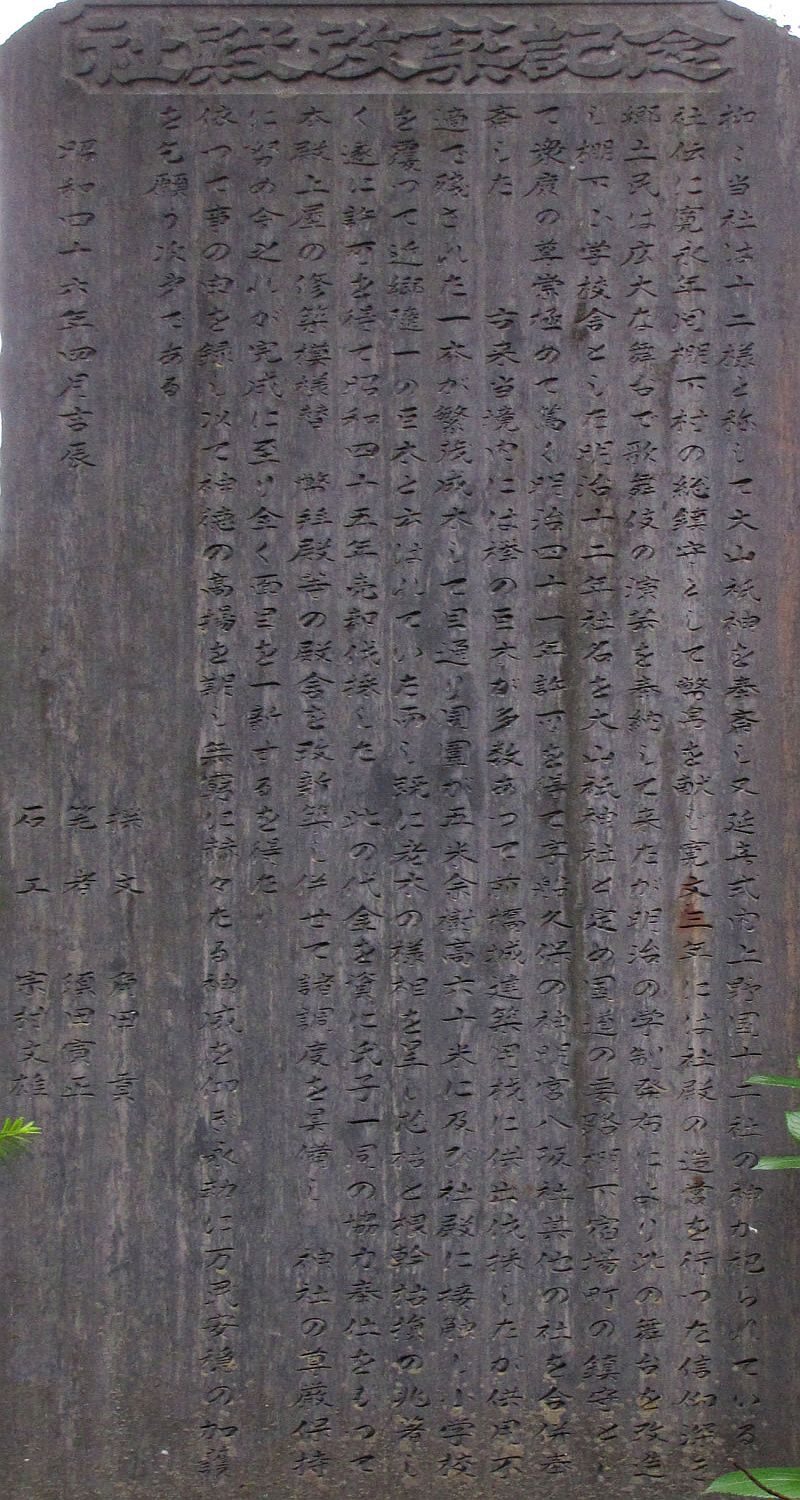 社殿改築記念
抑々当社は十二様と称して大山祇神を奉斎し又延喜式内上野国十二社の神が祀られている
社伝に寛永年間棚下村の総鎮守として幣帛を献じ寛文三年には社殿の造営を行つた信仰深き
郷土民は広大な舞台で歌舞伎の演芸を奉納して来たが明治の学制発布により此の舞台を改造
し棚下小学校舎とした明治十二年社名を大山祇神社と定め国道の要路棚下宿場町の鎮守とし
て衆庶の尊崇極めて篤く明治四十一年許可を得て字鮎久保の神明宮八坂社其他の社を合併奉
斎した　古来当境内には欅の巨木が多数あつて前橋城建築用材に供出伐採したが供用不
適で残された一本が繁茂成木して目通り周囲が五米余樹高六十米に及び社殿に接触し小学校
を覆つて近郷随一の巨木と云はれていた而し既に老木の様相を呈し枯と根幹枯損の兆著し
く遂に許可を得て昭和四十五年売却伐採した　此の代金を資に氏子一同の協力奉仕をもつて
本殿上屋の修築模様替　幣拝殿等の殿舎を改新築し併せて諸調度を具備し　神社の尊厳保持
に努め今之れが完成に至り全く面目を一新するを得た
依つて事の由を録し以て神徳の高揚を期し無窮に赫々たる神威を仰ぎ永劫に万民安穏の加護
を乞願う次第である
昭和四十六年四月吉辰
撰文　角田重
筆者　須田寅正
石工　宗村文雄